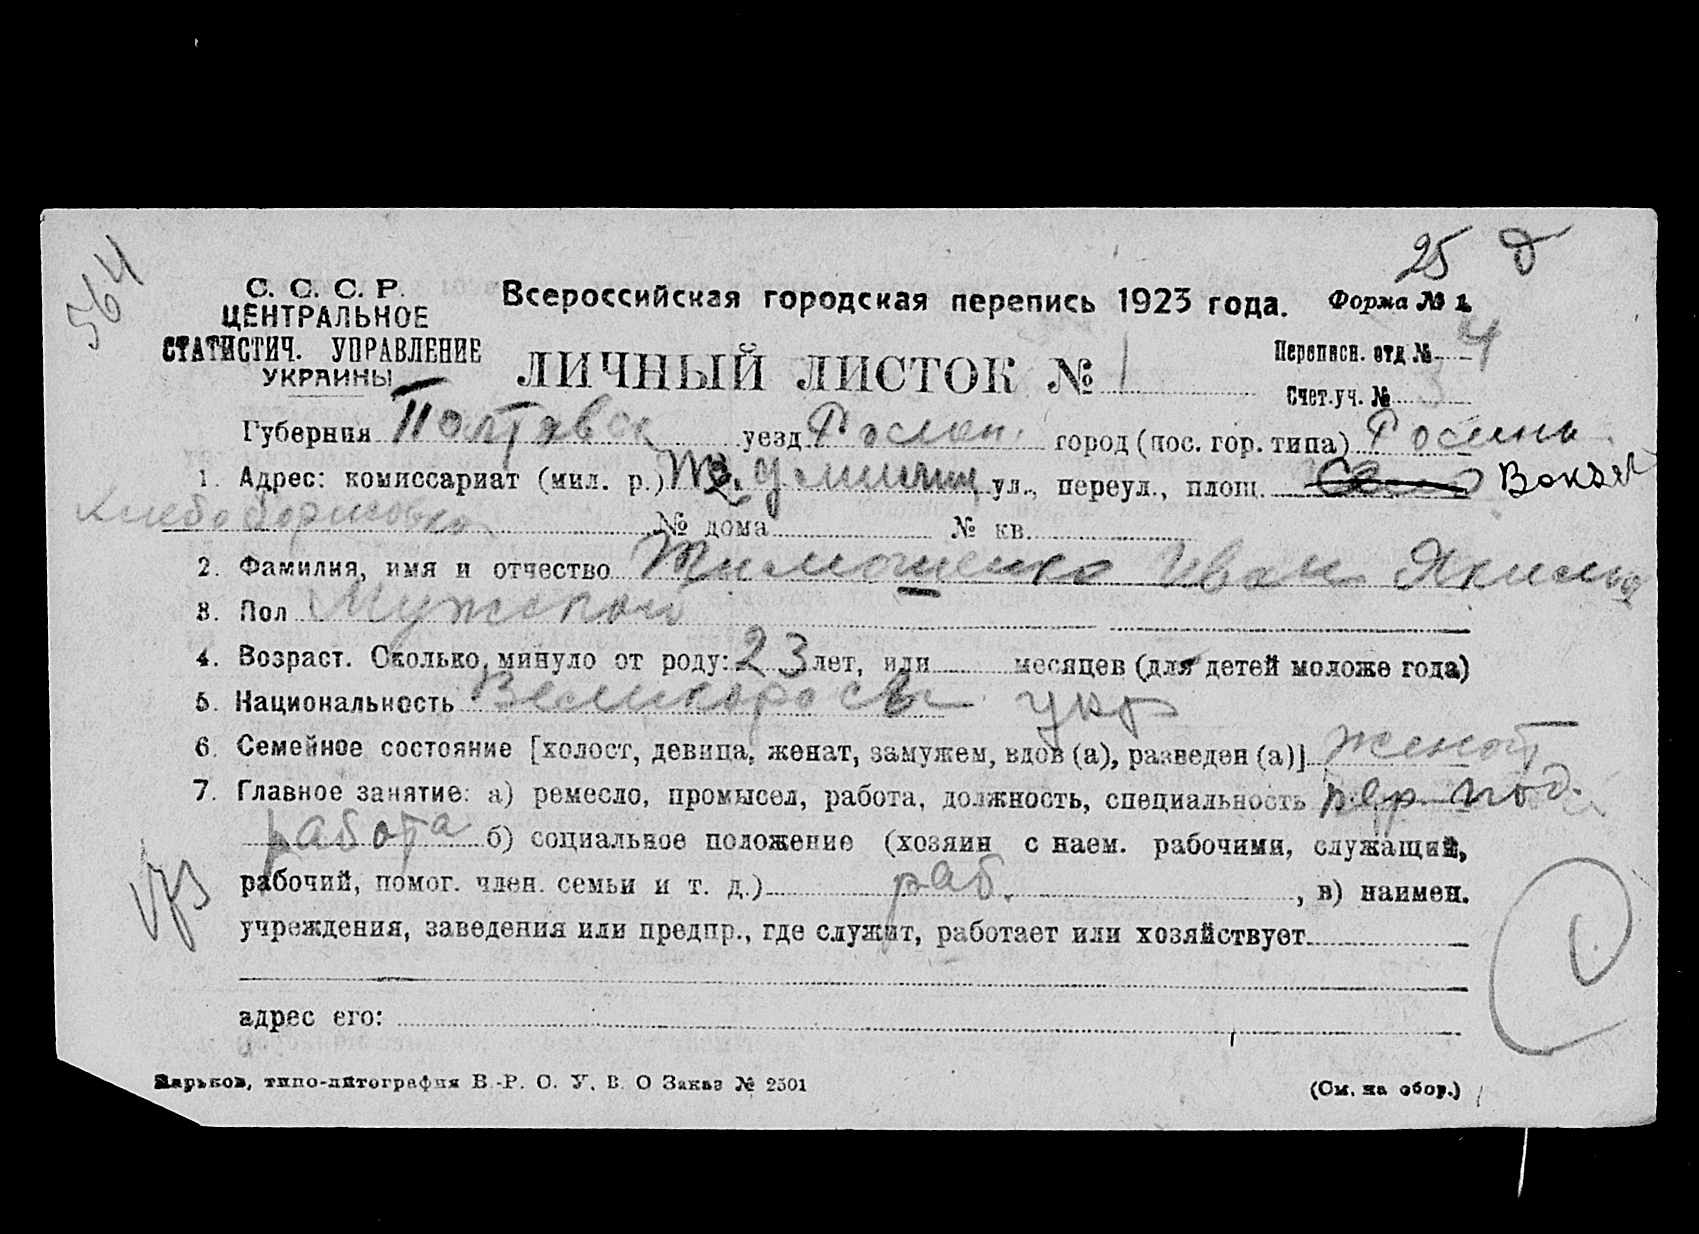 564
25
С. С. С. Р.
ЦЕНТРАЛЬНОЕ
СТАТИСТИЧ. УПРАВЛЕНИЕ
УКРАИНЫ
Всероссийская городская перепись 1923 года. Форма № 1.
ЛИЧНЫЙ ЛИСТОК № 1
Переписн. отд № 4
Счет.уч. № 3
Губерния Полтавск уезд город (пос. гор. типа)
1. Адрес: комиссариат (мил. р.) ул., переул., площ. Вокзал
№ дома № кв.
2. Фамилия, имя и отчество Тимошенко Иван
3. Пол Мужской
4. Возраст. Сколько минуло от роду: 23 лет, или месяцев (для детей моложе года)
5. Национальность укр
6. Семейное состояние [холост, девица, женат, замужем, вдов (а), разведен (а)] женат
7. Главное занятие: а) ремесло, промысел, работа, должность, специальность
работа б) социальное положение (хозяин с наем. рабочими, служащий,
рабочий, помог. член. семьи и т. д.) раб. , в) наимен.
учреждения, заведения или предпр., где служит, работает или хозяйствует
адрес его:
Харьков, типо-литография В.-Р. О. У. В. О Заказ № 2501
(См. на обор.)